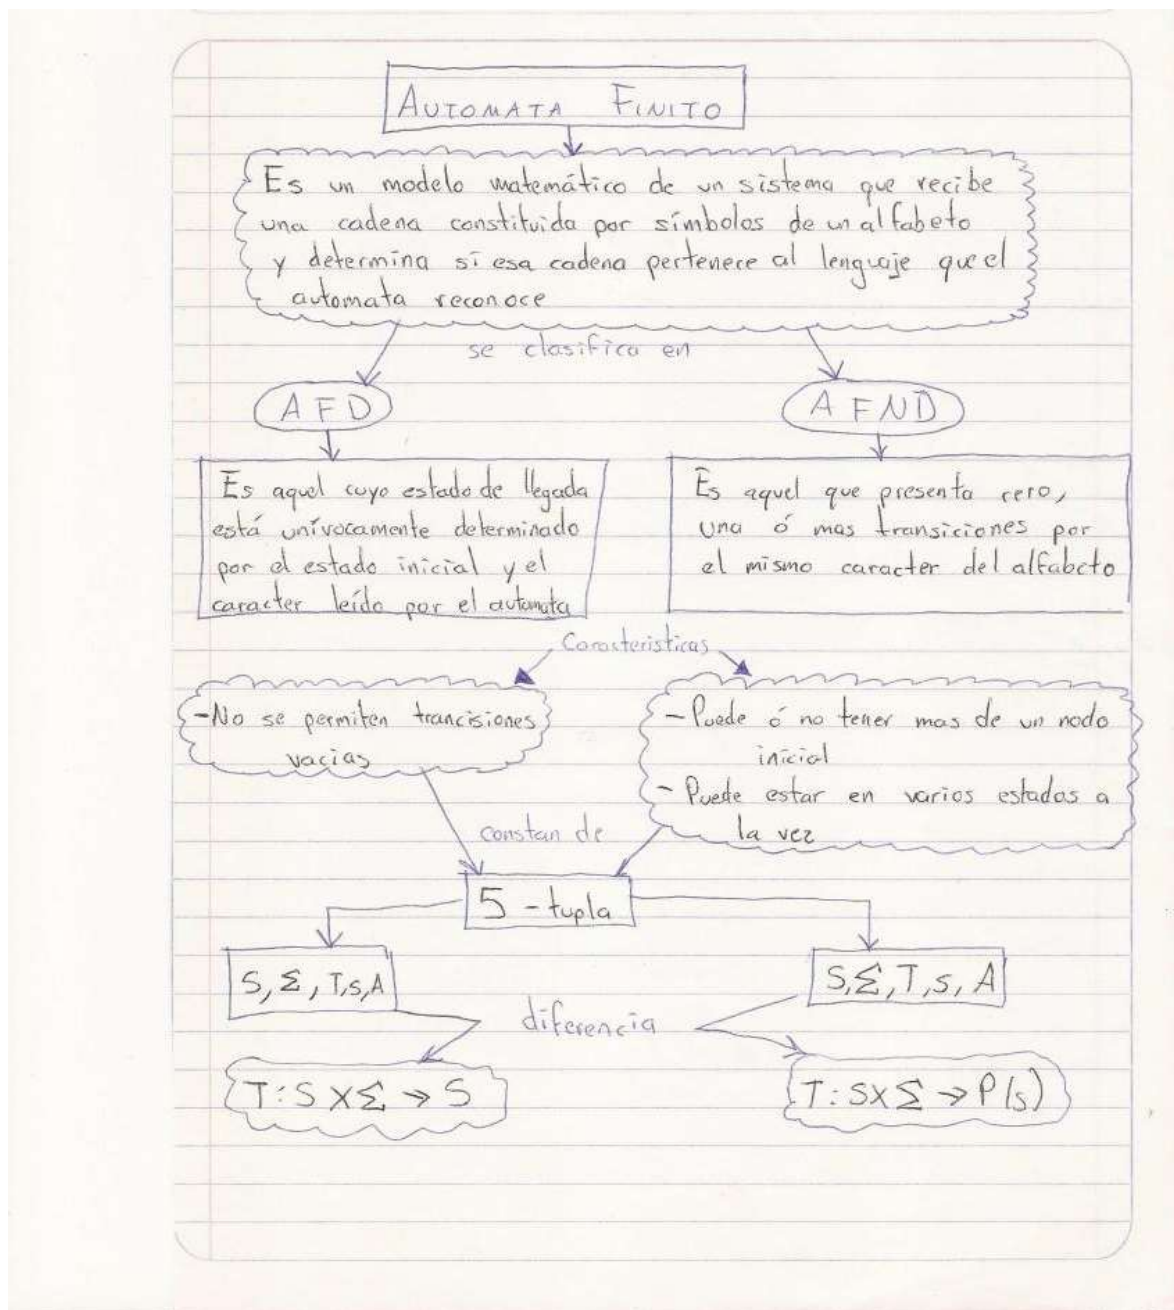 AUTOMATA FINITO
Es un modelo matemático de un sistema que recibe
una cadena constituida por símbolos de un alfabeto
y determina si esa cadena pertenece al lenguaje que el
automata reconoce
se clasifica en
AFD
AFND
Es aquel cuyo estado de llegada
está unívocamente determinado
por el estado inicial y el
caracter leído por el automata
Es aquel que presenta cero,
una ó mas transiciones por
el mismo caracter del alfabeto
Caracteristicas
-No se permiten trancisiones
vacias
- Puede ó no tener mas de un nodo
inicial
- Puede estar en varios estados a
la vez
constan de
5-tupla
S, Σ, T, s, A
S, Σ, T, s, A
diferencia
T: S X Σ → S
T: S X Σ → P(s)